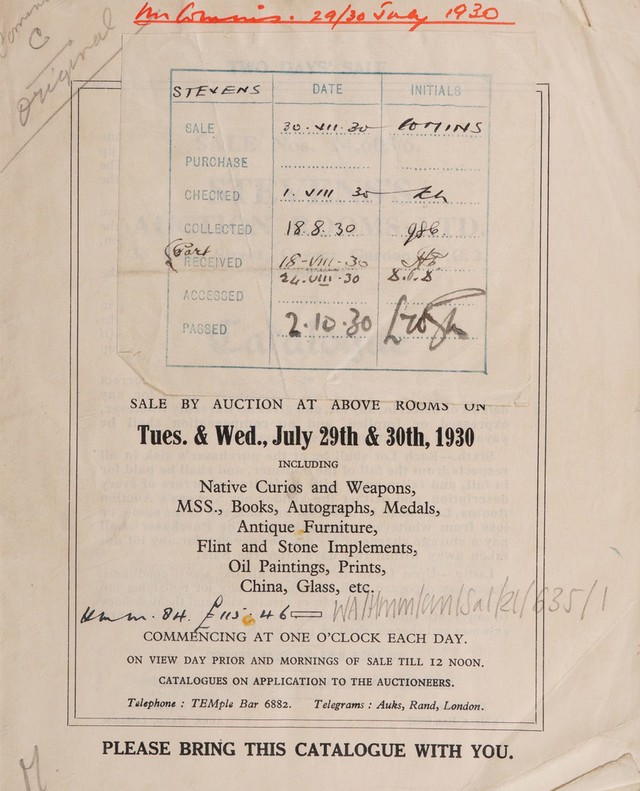 Mr Comins. 29/30 July 1930
C
original
TWO DAYS' SALE
STEVENS DATE INITIALS
SALE 30.VII.30 COMINS
PURCHASE
CHECKED 1.VIII 30
COLLECTED 18.8.30
Part
RECEIVED 18-VIII-30
24.VIII.30
ACCESSED
PASSED 2.10.30
SALE BY AUCTION AT ABOVE ROOMS ON
Tues. & Wed., July 29th & 30th, 1930
INCLUDING
Native Curios and Weapons,
MSS., Books, Autographs, Medals,
Antique Furniture,
Flint and Stone Implements,
Oil Paintings, Prints,
China, Glass, etc.
84. £115.4.6 WA/Hmm/Cm/Sal/21/635/1
COMMENCING AT ONE O'CLOCK EACH DAY.
ON VIEW DAY PRIOR AND MORNINGS OF SALE TILL 12 NOON.
CATALOGUES ON APPLICATION TO THE AUCTIONEERS.
Telephone : TEMple Bar 6882. Telegrams : Auks, Rand, London.
PLEASE BRING THIS CATALOGUE WITH YOU.